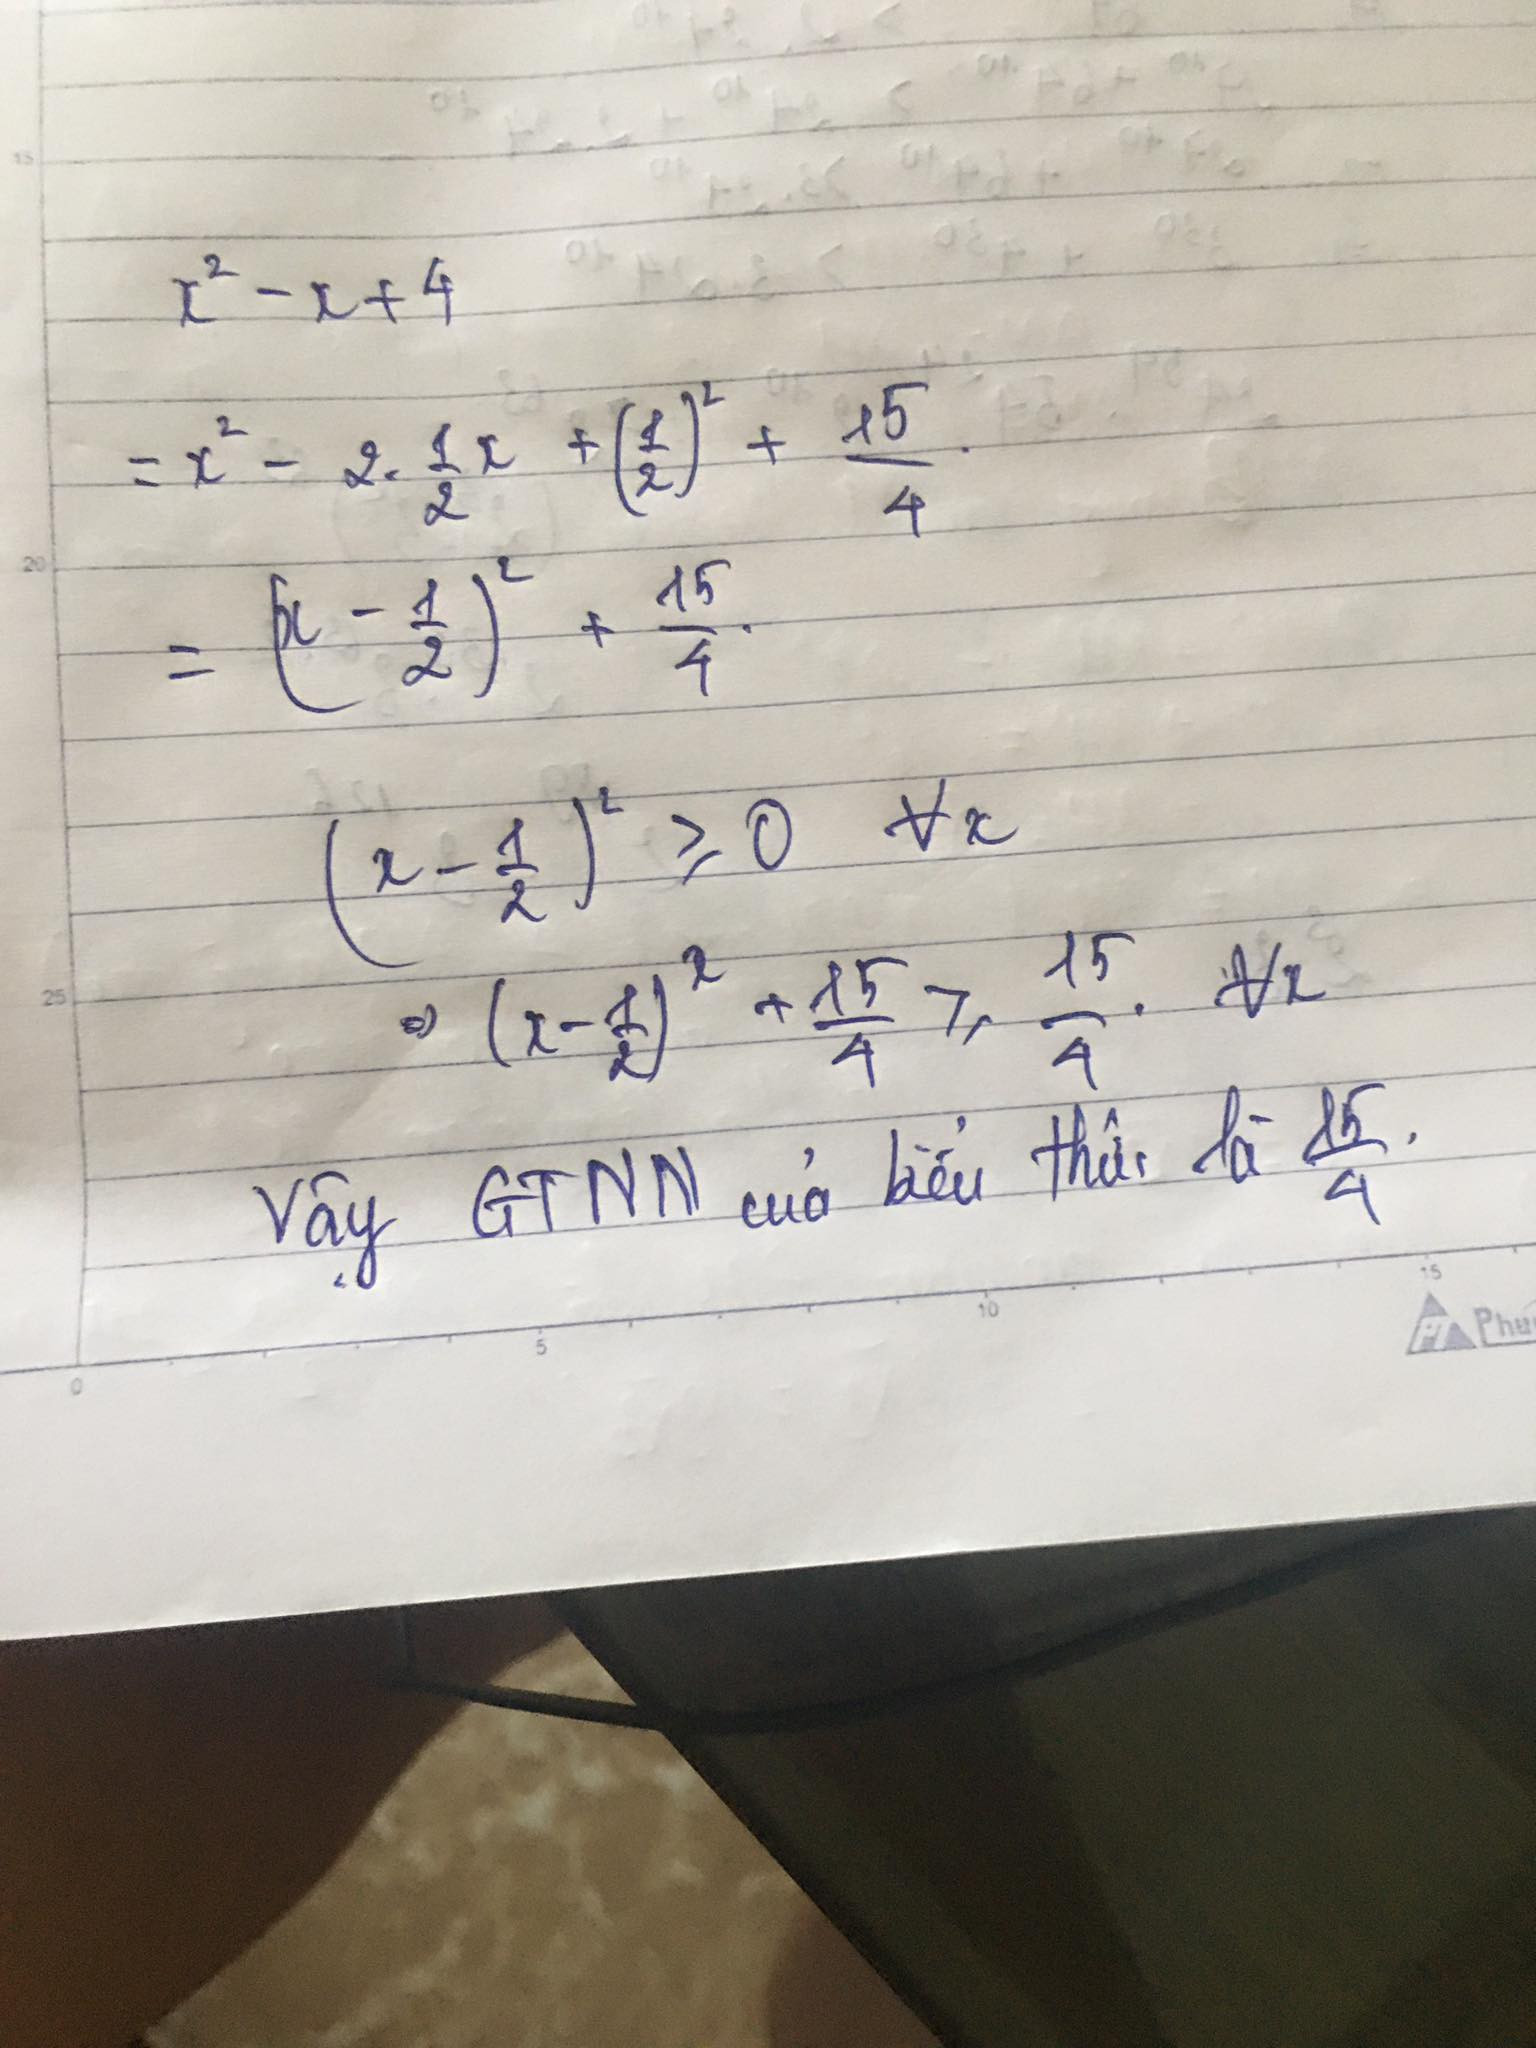 x² - x + 4
= x² - 2. 1/2 x + (1/2)² + 15/4.
= (x - 1/2)² + 15/4.
(x - 1/2)² ≥ 0 ∀x
⇒ (x - 1/2)² + 15/4 ≥ 15/4. ∀x
Vậy GTNN của biểu thức là 15/4.
15
20
25
0
5
10
15